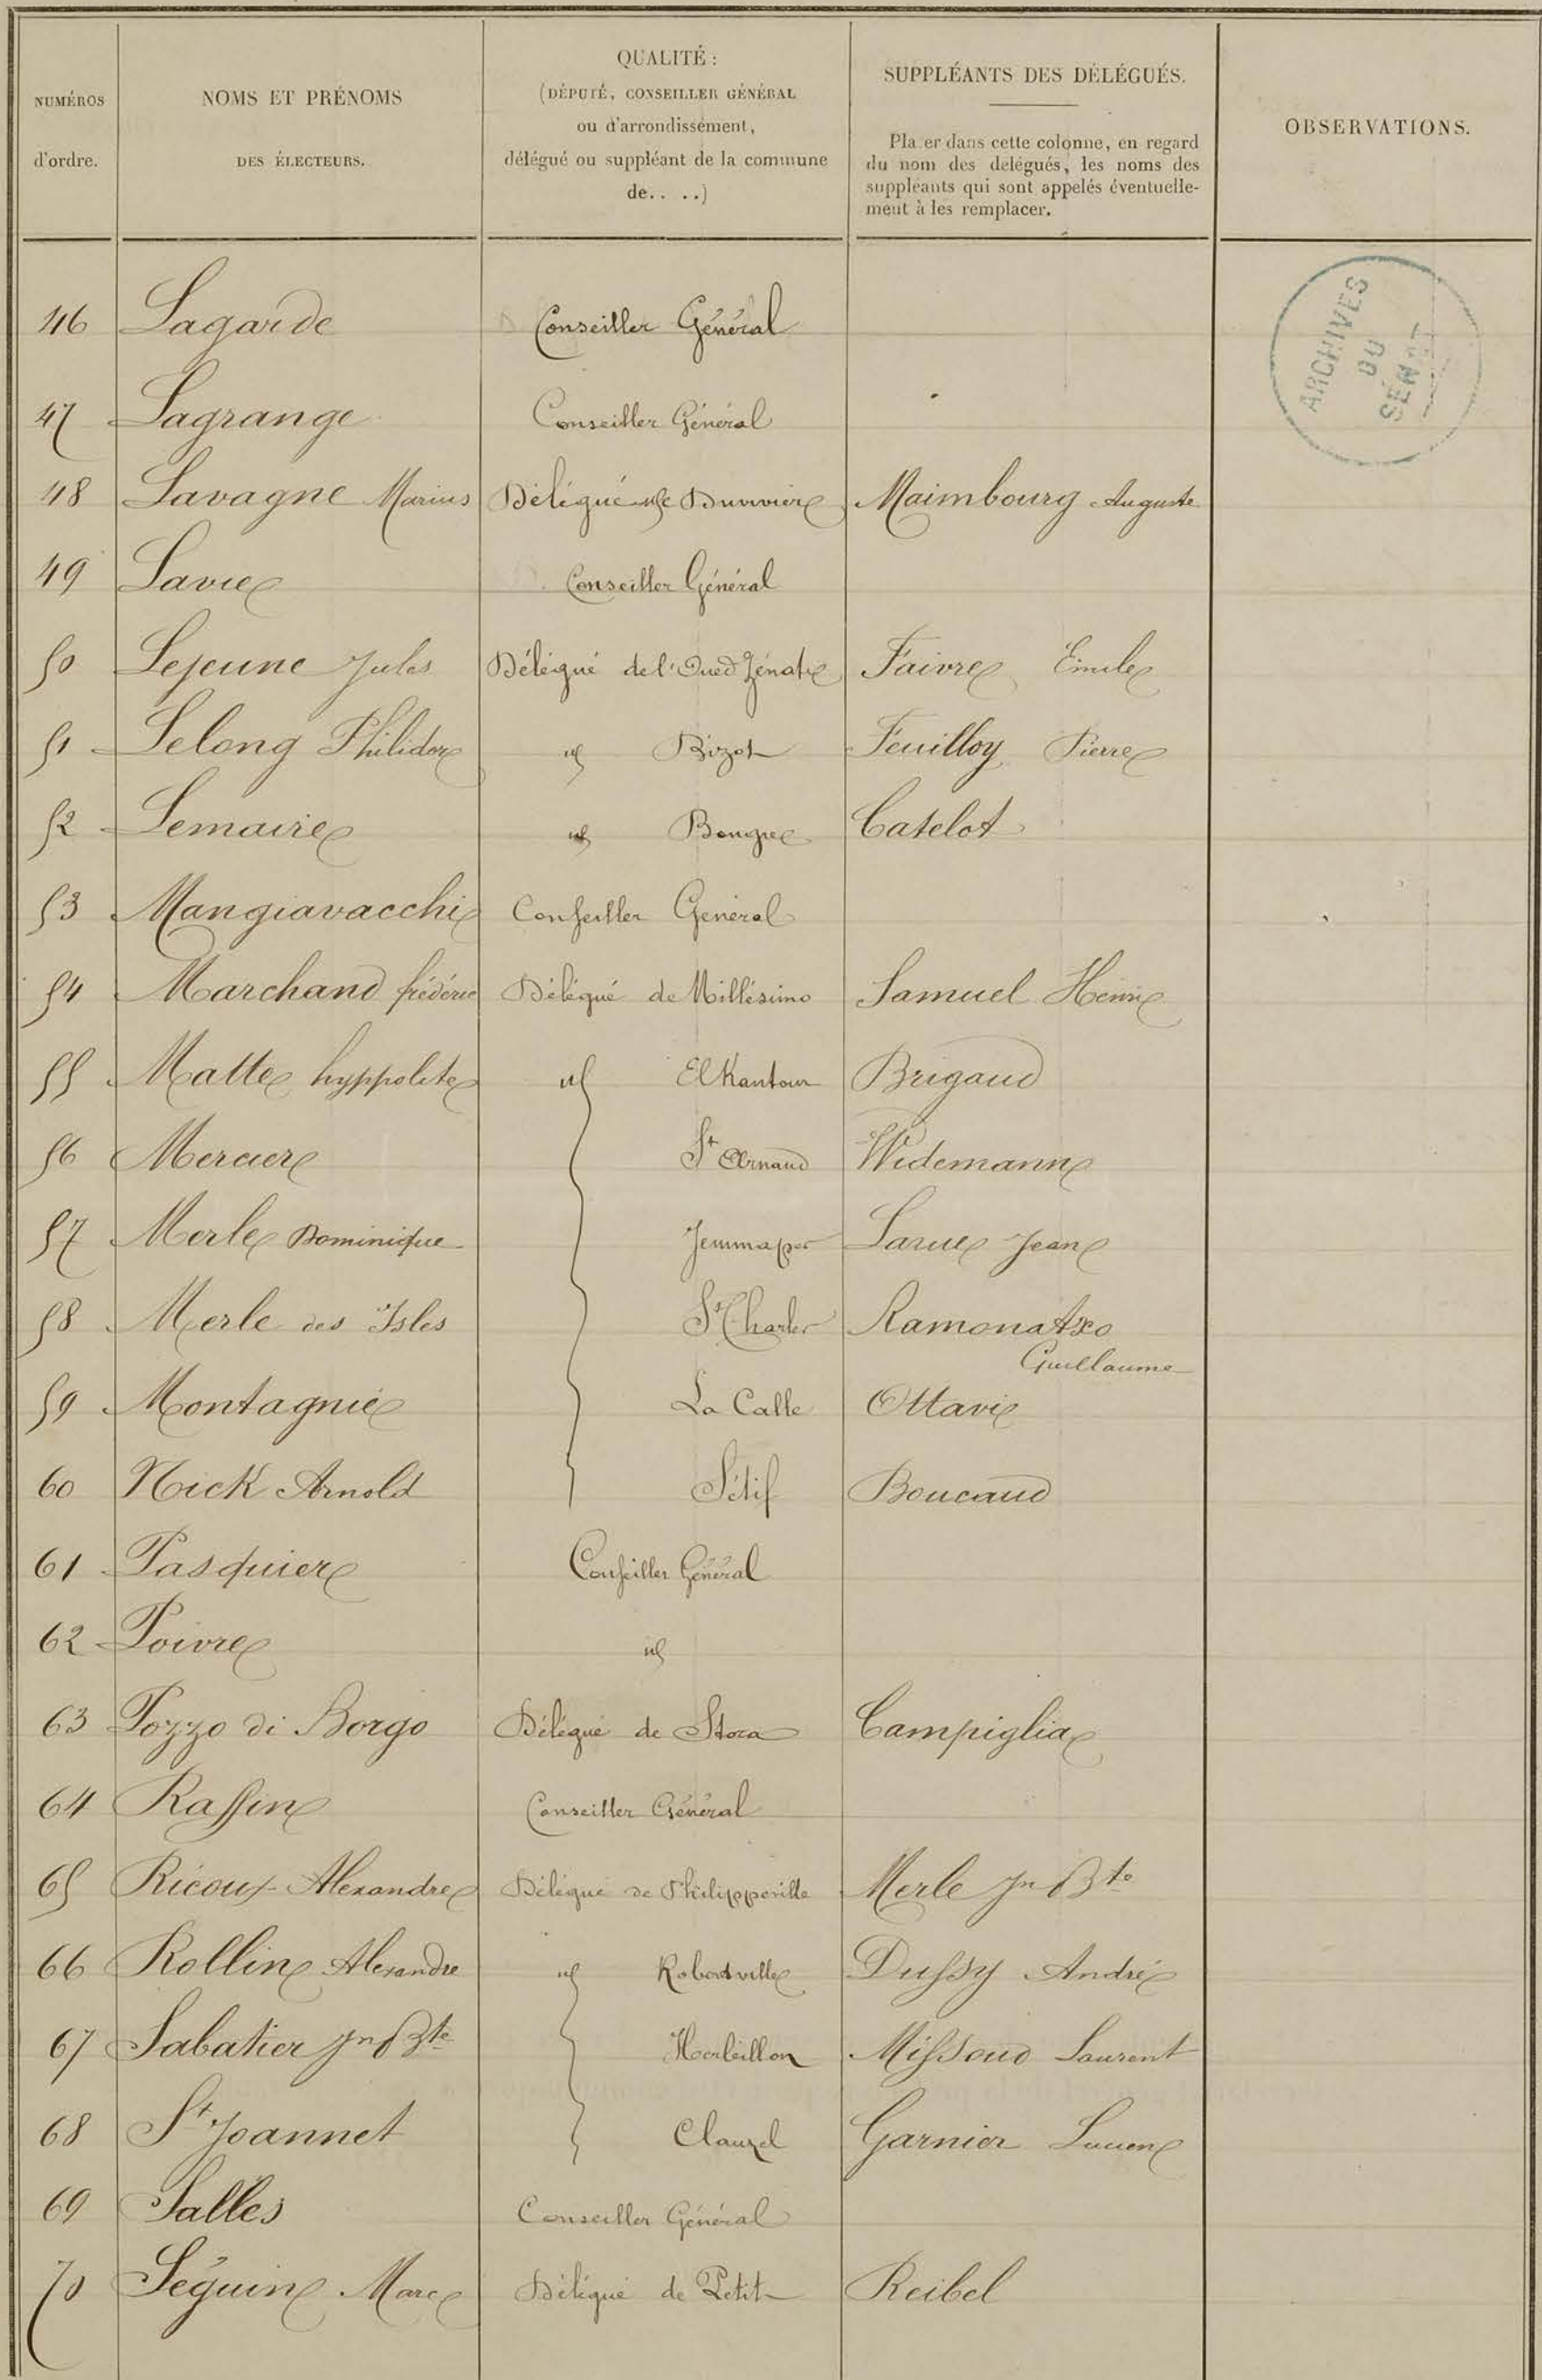 NUMÉROS
d'ordre.
NOMS ET PRÉNOMS
DES ÉLECTEURS.
QUALITÉ :
(DÉPUTÉ, CONSEILLER GÉNÉRAL
ou d'arrondissement,
délégué ou suppléant de la commune
de.. ..)
SUPPLÉANTS DES DÉLÉGUÉS.
Pla er dans cette colonne, en regard
du nom des délégués, les noms des
suppléants qui sont appelés éventuelle-
ment à les remplacer.
OBSERVATIONS.
ARCHIVES
DU
SÉNAT
46 Lagarde Conseiller Général
47 Lagrange Conseiller Général
48 Lavagne Marius Délégué de Duvivier Maimbourg Auguste
49 Lavie Conseiller Général
50 Lejeune Jules Délégué de l'Oued Zénati Faivre Emile
51 Lelong Philidor id Bizot Feuilloy Pierre
52 Lemaire id Bougie Catelot
53 Mangiavacchi Conseiller Général
54 Marchand frédéric Délégué de Millésimo Samuel Henri
55 Matte hyppolite id El Kantour Brigaud
56 Mercier St Arnaud Widemann
57 Merle Dominique Jemmapes Larue Jean
58 Merle des Isles St Charles Ramonatxo
Guillaume
59 Montagnié La Calle Ottavi
60 Nick Arnold Sétif Boucaud
61 Pasquier Conseiller Général
62 Poivre id
63 Pozzo di Borgo Délégué de Stora Campiglia
64 Rassin Conseiller Général
65 Ricoux Alexandre Délégué de Philippeville Merle Jn Bte
66 Rollin Alexandre id Robertville Dussy André
67 Sabatier Jn Bte Herbillon Missoud Laurent
68 St Joannet Clauzel Garnier Lucien
69 Sallès Conseiller Général
70 Séguin Marc Délégué de Petit Reibel